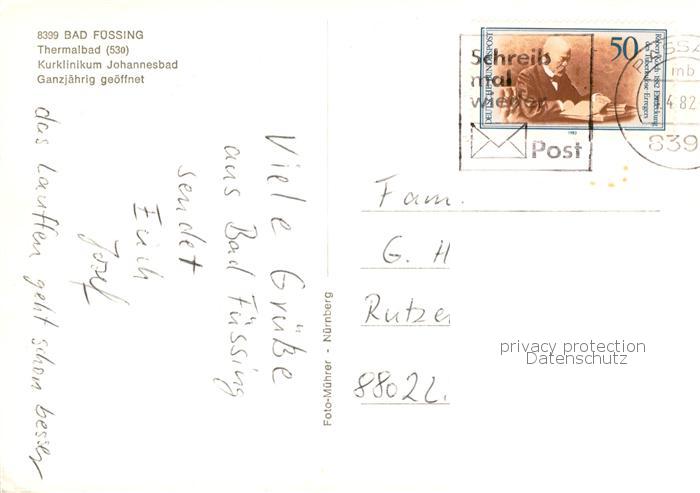 8399 BAD FÜSSING
Thermalbad (530)
Kurklinikum Johannesbad
Ganzjährig geöffnet
Viele Grüße
aus Bad Füssing
sendet
Euch
Josef
das Lauffen geht schon besser
Foto-Mührer - Nürnberg
DEUTSCHE BUNDESPOST
50
Robert Koch 1882 Entdeckung
des Tuberkulose-Erregers
1982
Schreib
mal
wieder
Post
mb
4 82
839
Fam.
G. H
Rutze
8802 L.
privacy protection
Datenschutz